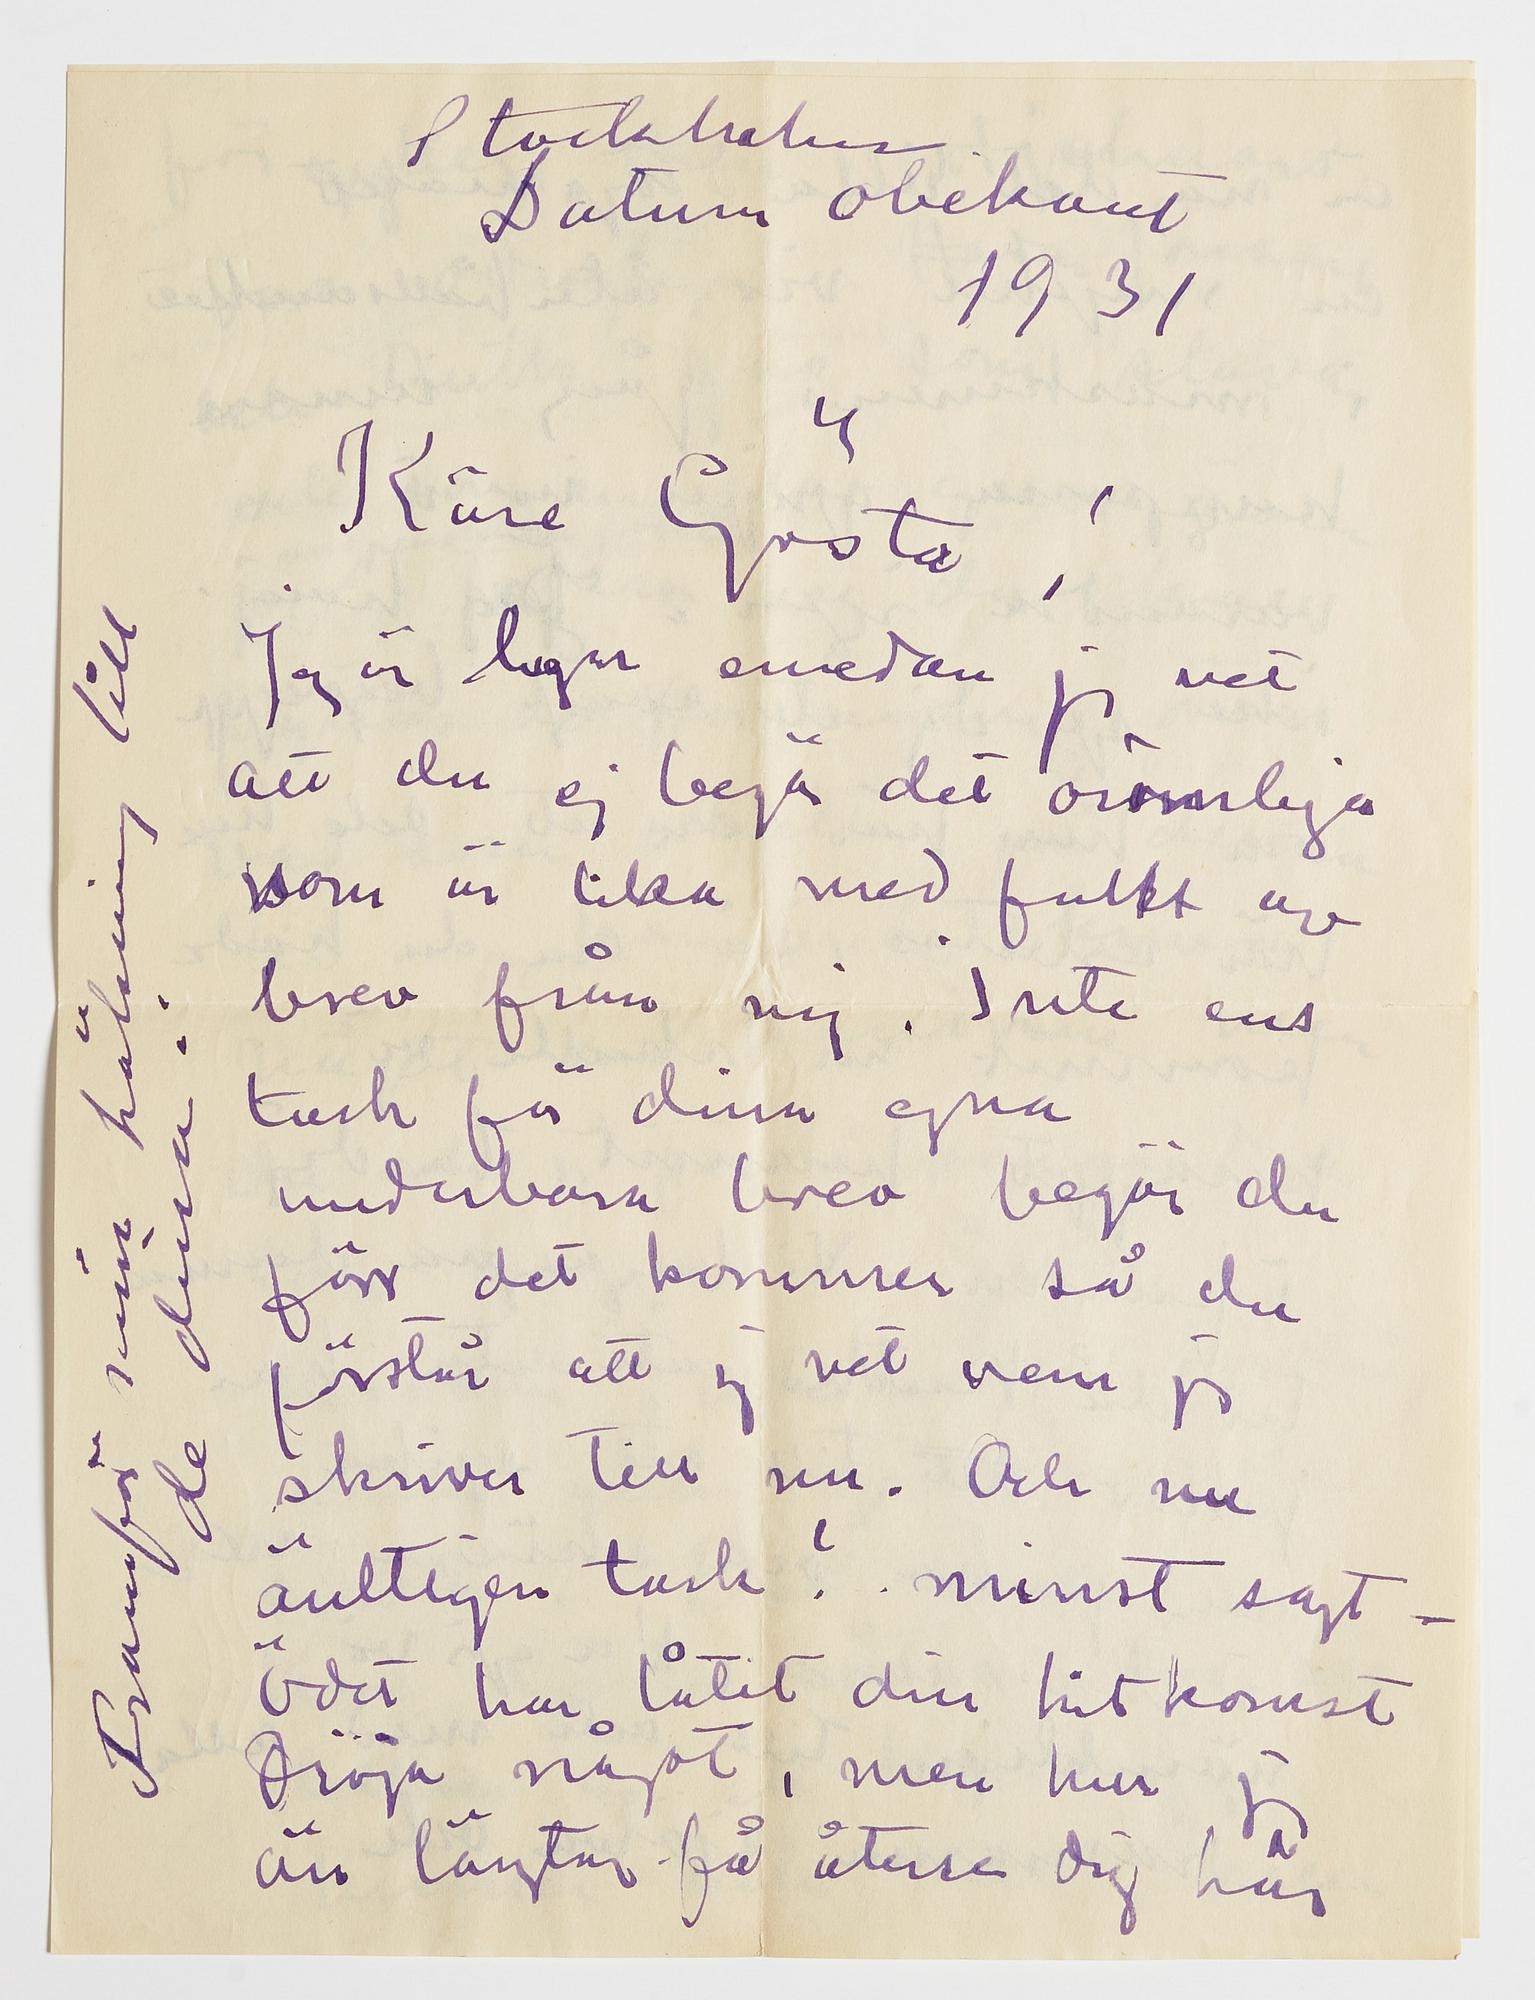 Stockholm.
Datum obekant
1931
Käre Gösta!
Jag är lugn emedan jag vet
att du ej begär det orimliga
som är lika med fullt av
brev från mig. Inte ens
tack för dina egna
underbara brev begär du
förr det kommer så du
förstår att jag vet vem jag
skriver till nu. Och nu
äntligen tack! minst sagt –
Ödet har låtit din hitkomst
dröja något, men hur jag
än längtar få återse dig här
Framför min hälsning till
de dina.